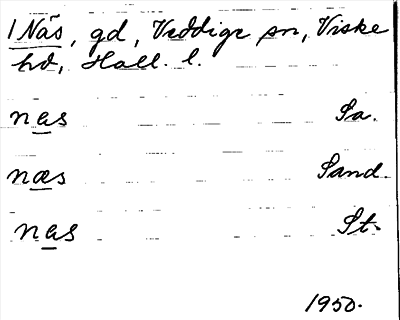 1 Näs, gd, Veddige sn, Viske
hd, Hall. l.
nas Sa.
næs Sand.
nas St.
1950.